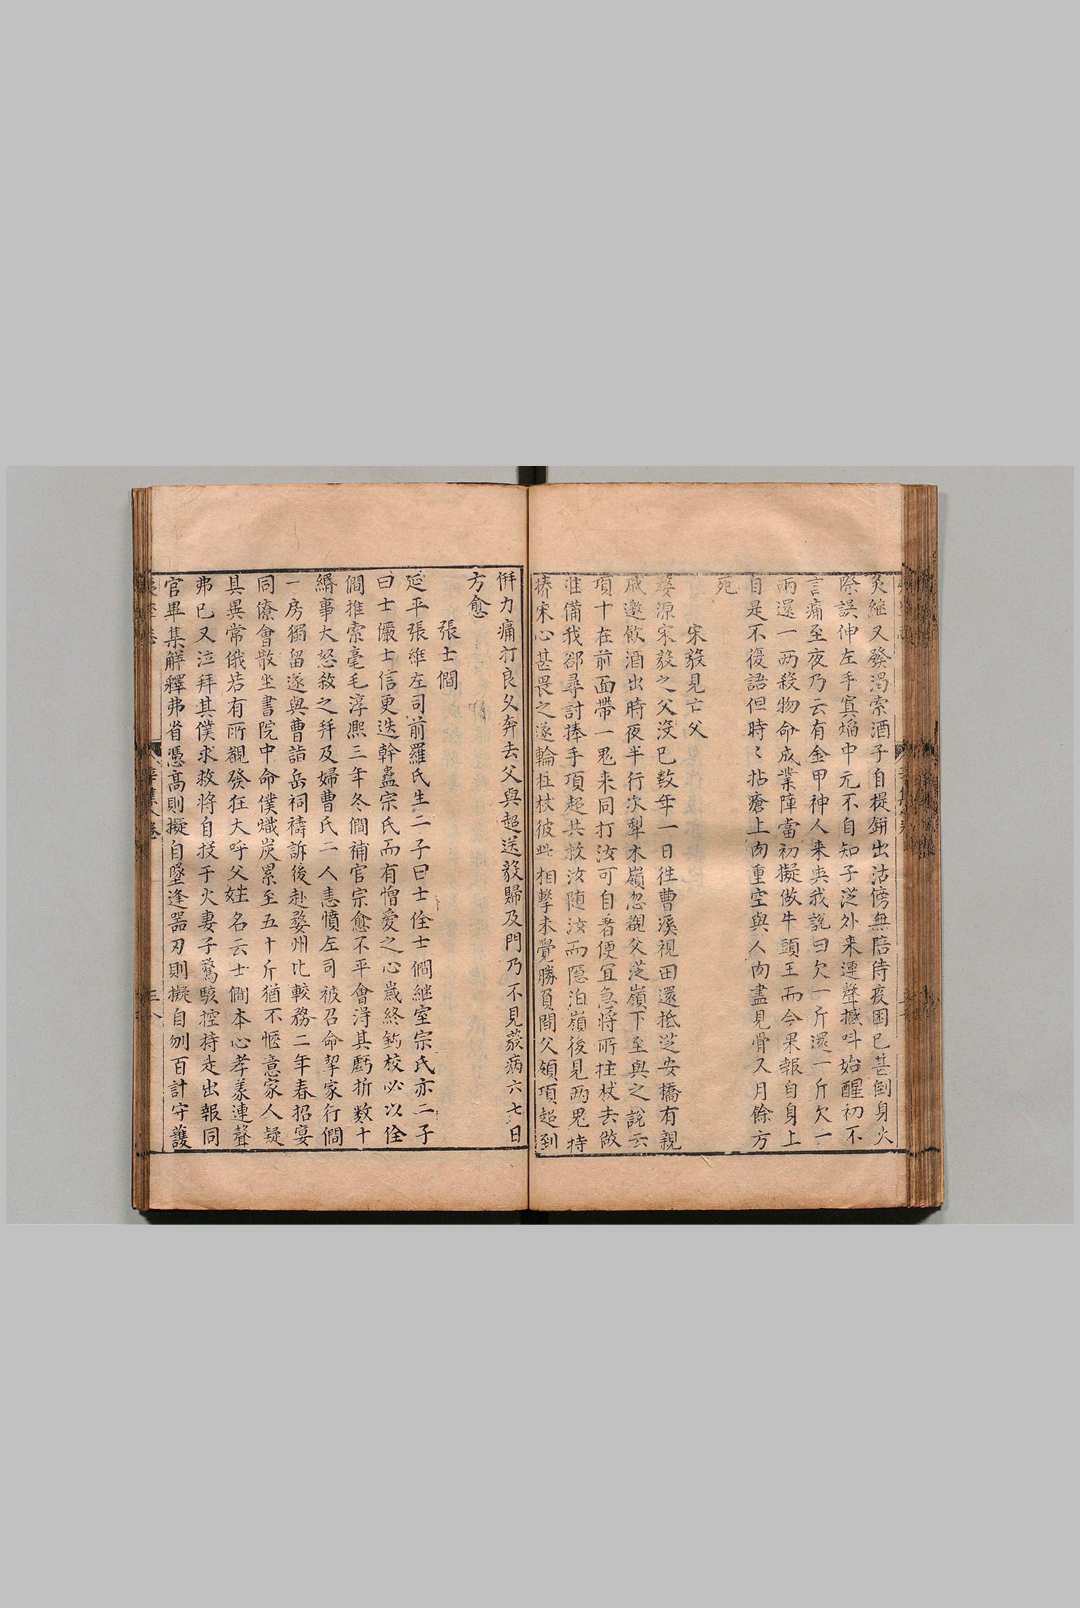 灸繼又發渴索酒子自提鉼出沽傍無陪侍疲困已甚倒身火
除誤伸左手寘焰中元不自知子從外来連聲撼呌始醒初不
言痛至夜乃云有金甲神人来共我說曰欠一斤還一斤欠一
兩還一兩殺物命成業障當初擬做牛頭王而今果報自身上
自是不復語但時〻拈瘡上肉重空與人肉盡見骨又月餘方
死
宋毅見亡父
婺源宋毅之父沒已数年一日往曹溪視田還抵芝安橋有親
戚邀飲酒出時夜半行次犁木嶺忽覩父從嶺下至與之說云
項十在前面帶一鬼来同打汝可自著便宜急將所拄杖去做
准備我郤尋討捧手項超共救汝随汝而隠泊嶺後見两鬼持
棒宋心甚畏之遂輪拄杖彼此相擊未覺勝負間父領項超到
倂力痛打良久奔去父與超送毅歸及門乃不見毅病六七日
方愈
張士僩
延平張維左司前羅氏生二子曰士佺士僩繼室宗氏亦二子
曰士儼士信更迭幹蠱宗氏而有憎愛之心歲終鈎校必以佺
僩推索毫毛淳熈三年冬僩補官宗愈不平會淂其虧折数十
緡事大怒敘之拜及婦曹氏二人恚憤左司被召命挈家行僩
一房獨留遂與曹詣岳祠禱訴後赴婺州比較務二年春招宴
同僚會散坐書院中命僕熾炭累至五十斤猶不愜意家人疑
其異常俄若有所覩發狂大呼父姓名云士僩本心孝義連聲
弗已又泣拜其僕求救將自投于火妻子驚駭控持走出報同
官畢集解釋弗省憑高則擬自墜逢器刃則擬自刎百計守護